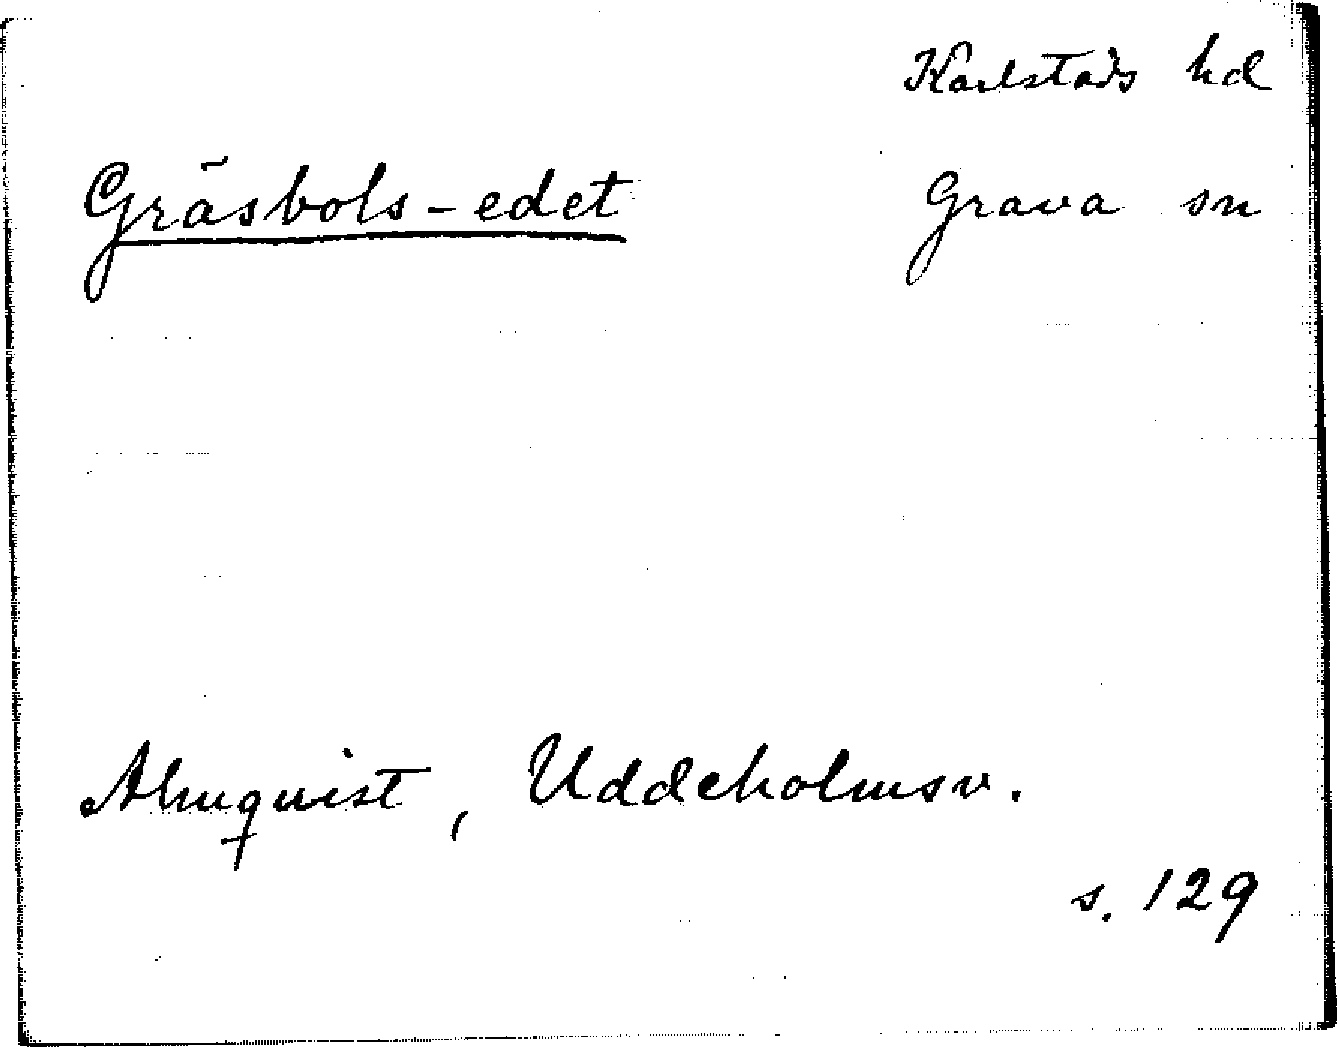 Karlstads hd
Gräsbols-edet
Grava sn
Almquist, Uddeholmsv.
s. 129